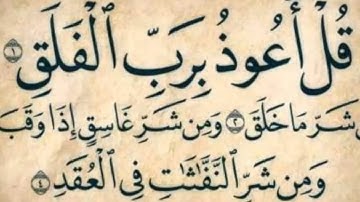 قُلْ أَعُوذُ بِرَبِّ ٱلْفَلَقِ ١
شَرِّ مَا خَلَقَ ٢ وَمِن شَرِّ غَاسِقٍ إِذَا وَقَبَ
وَمِن شَرِّ ٱلنَّفَّٰثَٰتِ فِى ٱلْعُقَدِ ٤